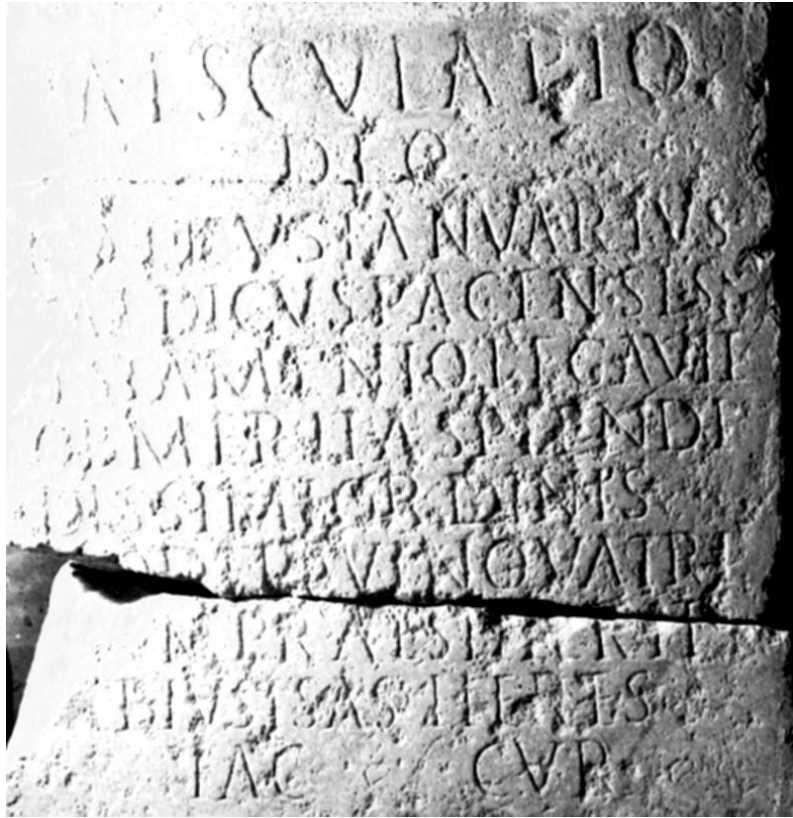 AESCVLAPIO
DEO
C ATTIVS IANVARIVS
MEDICVS PACENSIS
TESTAMENTO LEGAVIT
OB MERITA SPLENDI
DISSIMI ORDINIS
QVINQVATRI
PRAESTITERIT
FABIVS ISAS HERES
FAC CVR